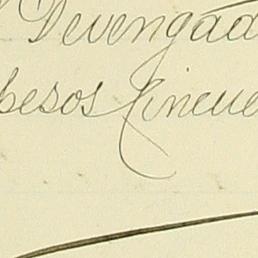 Devengad
pesos Cincue